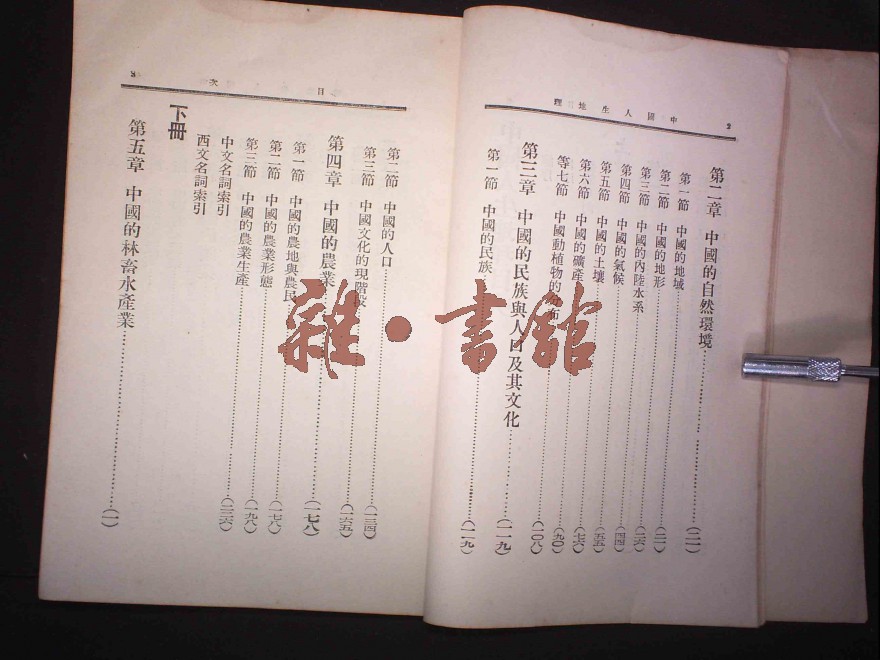 中國人生地理 2
第二章 中國的自然環境……(二一)
第一節 中國的地域……(二一)
第二節 中國的地形……(二六)
第三節 中國的內陸水系……(四四)
第四節 中國的氣候……(五五)
第五節 中國的土壤……(七六)
第六節 中國的礦產……(九〇)
等七節 中國動植物的分布……(一〇八)
第三章 中國的民族與人口及其文化……(一一九)
第一節 中國的民族……(一一九)
目次
第二節 中國的人口……(一三四)
第三節 中國文化的現階段……(一六五)
第四章 中國的農業……(一七八)
第一節 中國的農地與農民……(一七八)
第二節 中國的農業形態……(一九八)
第三節 中國的農業生產……(二三六)
中文名詞索引
西文名詞索引
下冊
第五章 中國的林畜水產業……(一)
雜·書館